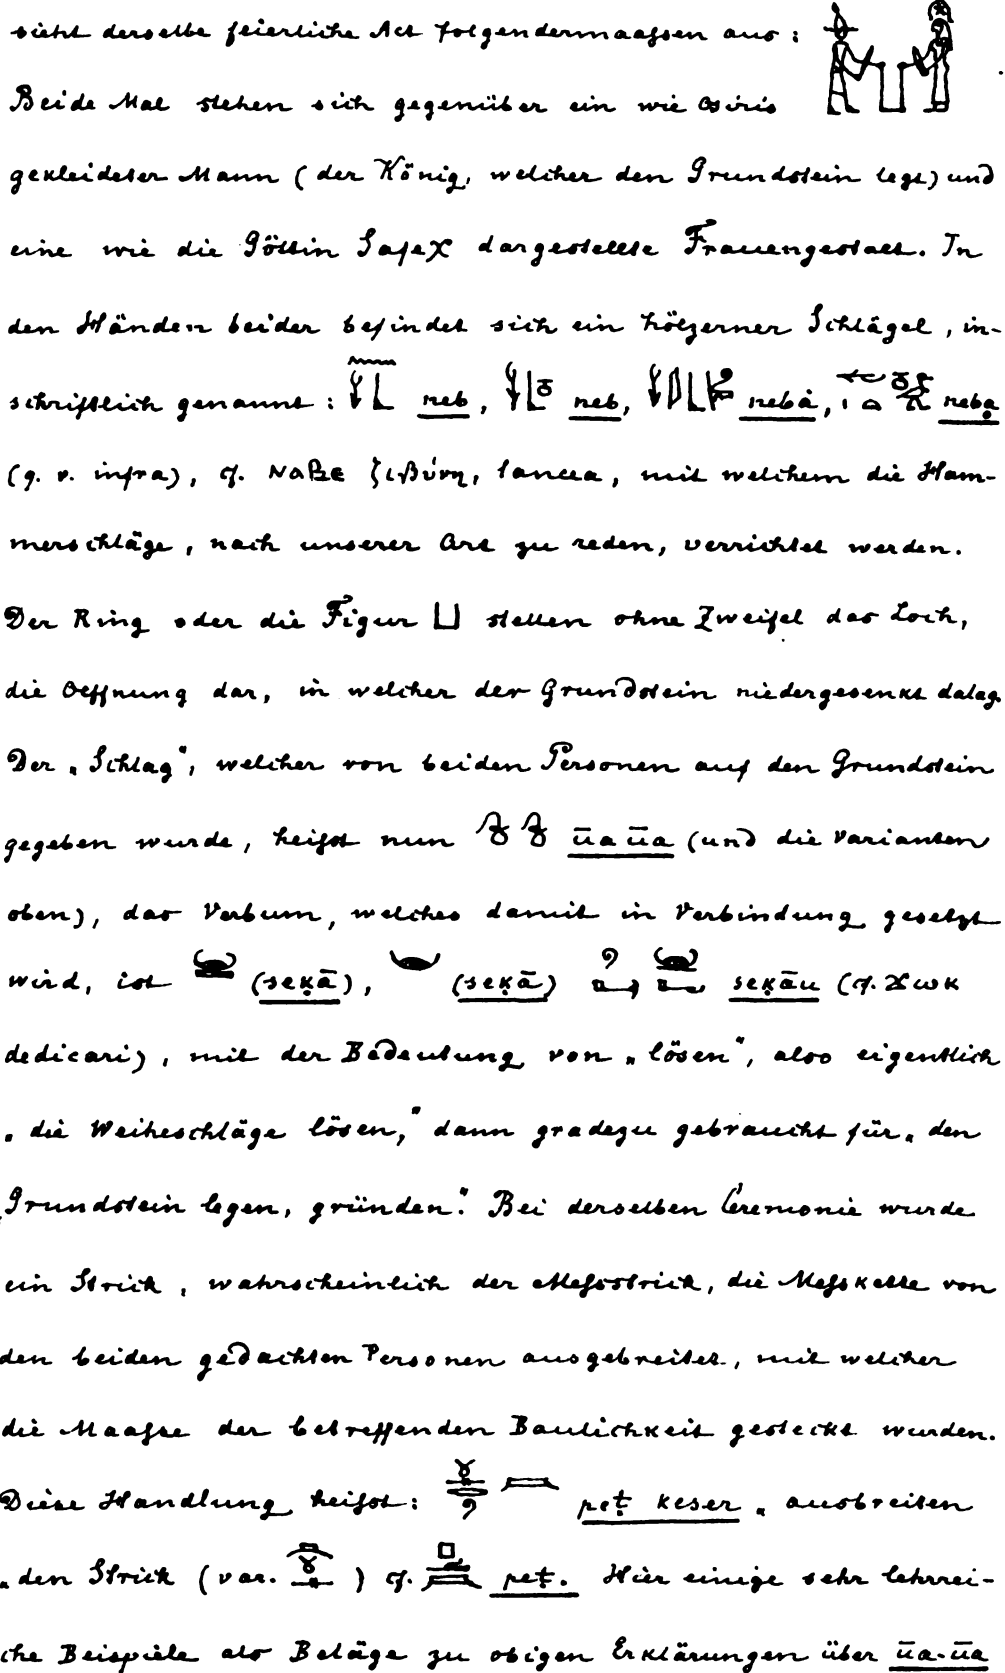 sieht derselbe feierliche Act folgendermaassen aus:
Beide Mal stehen sich gegenüber ein wie Osiris
gekleideter Mann (der König, welcher den Grundstein legt) und
eine wie die Göttin Safeχ dargestellte Frauengestalt. In
den Händen beider befindet sich ein hölzerner Schlägel, in-
schriftlich genannt: neb, neb, nebȧ, neba̤
(q. v. infra), cf. ⲚⲀⲂⲈ ζιβύνη, lancea, mit welchem die Ham-
merschläge, nach unserer Art zu reden, verrichtet werden.
Der Ring oder die Figur ⊔ stellen ohne Zweifel das Loch,
die Oeffnung dar, in welcher der Grundstein niedergesenkt dalag.
Der „Schlag", welcher von beiden Personen auf den Grundstein
gegeben wurde, heifst nun ūa ūa (und die Varianten
oben), das Verbum, welches damit in Verbindung gesetzt
wird, ist (seḳā), (seḳā) seḳāu (cf. ϫⲱⲕ
dedicari), mit der Bedeutung von „lösen", also eigentlich
„die Weiheschläge lösen," dann gradezu gebraucht für „den
Grundstein legen, gründen". Bei derselben Ceremonie wurde
ein Strick, wahrscheinlich der Mefsstrick, die Mefskette von
den beiden gedachten Personen ausgebreitet, mit welcher
die Maafse der betreffenden Baulichkeit gesteckt wurden.
Diese Handlung heifst: peṭ keser „ausbreiten
„den Strick (var. ) cf. peṭ. Hier einige sehr lehrrei-
che Beispiele als Beläge zu obigen Erklärungen über ūa-ūa